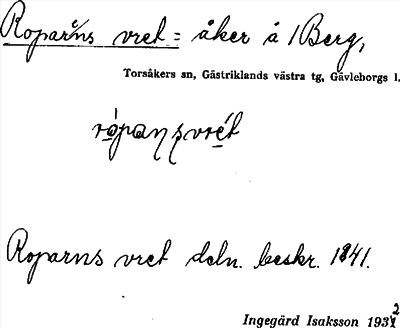 Roparns vret = åker å Berg,
Torsåkers sn, Gästriklands västra tg, Gävleborgs l.
Roparns vret deln. beskr. 1841.
Ingegärd Isaksson 1932